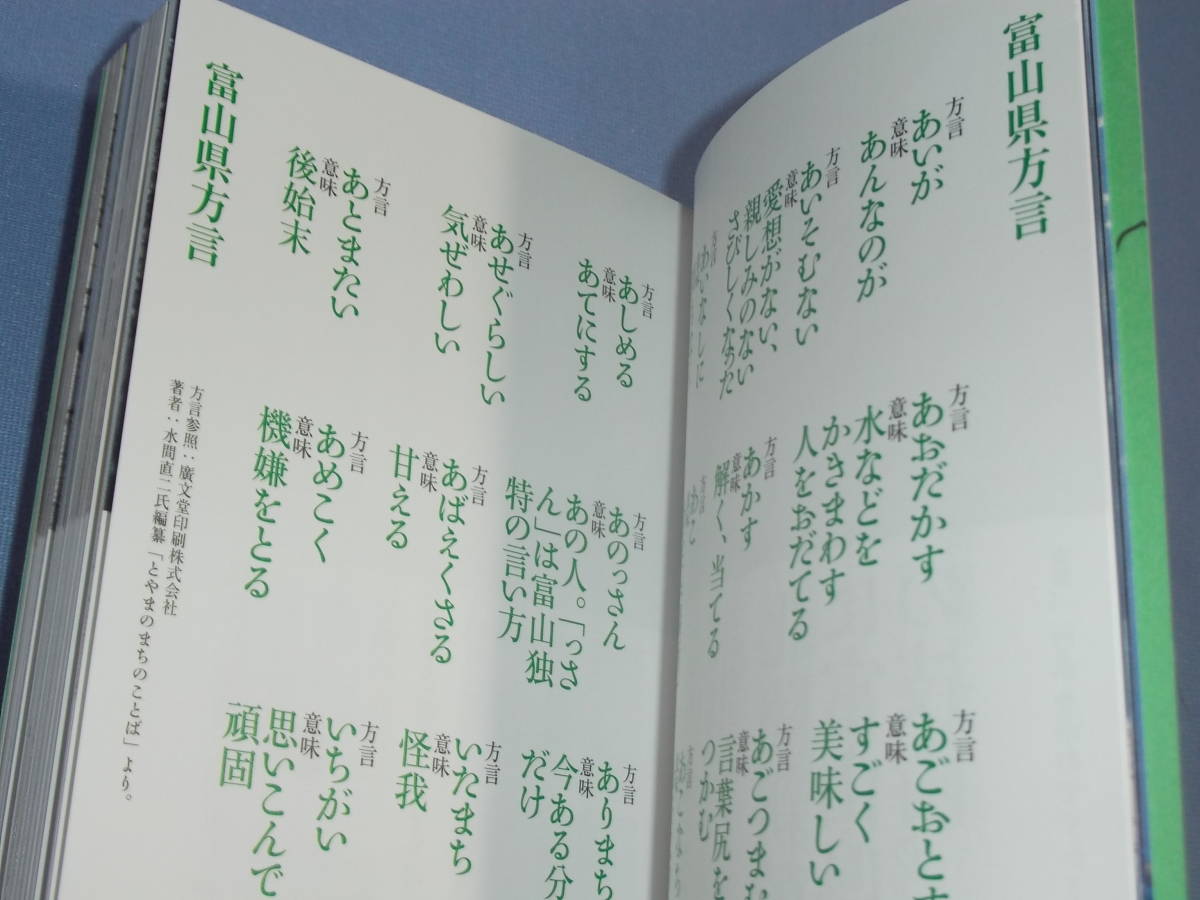 富山県方言
方言
あいが
意味
あんなのが
方言
あおだかす
意味
水などを
かきまわす
人をおだてる
方言
あごおとす
意味
すごく
美味しい
方言
あいそむない
意味
愛想がない、
親しみのない
さびしくなった
方言
あかす
意味
解く、当てる
方言
あごつまむ
意味
言葉尻を
つかむ
方言
あしめる
意味
あてにする
方言
あのっさん
意味
あの人。「っさ
ん」は富山独
特の言い方
方言
ありまち
意味
今ある分
だけ
方言
あせぐらしい
意味
気ぜわしい
方言
あばえくさる
意味
甘える
方言
いたまち
意味
怪我
方言
あとまたい
意味
後始末
方言
あめこく
意味
機嫌をとる
方言
いちがい
意味
思いこんで
頑固
富山県方言
方言参照：廣文堂印刷株式会社
著者：水間直二氏編纂「とやまのまちのことば」より。